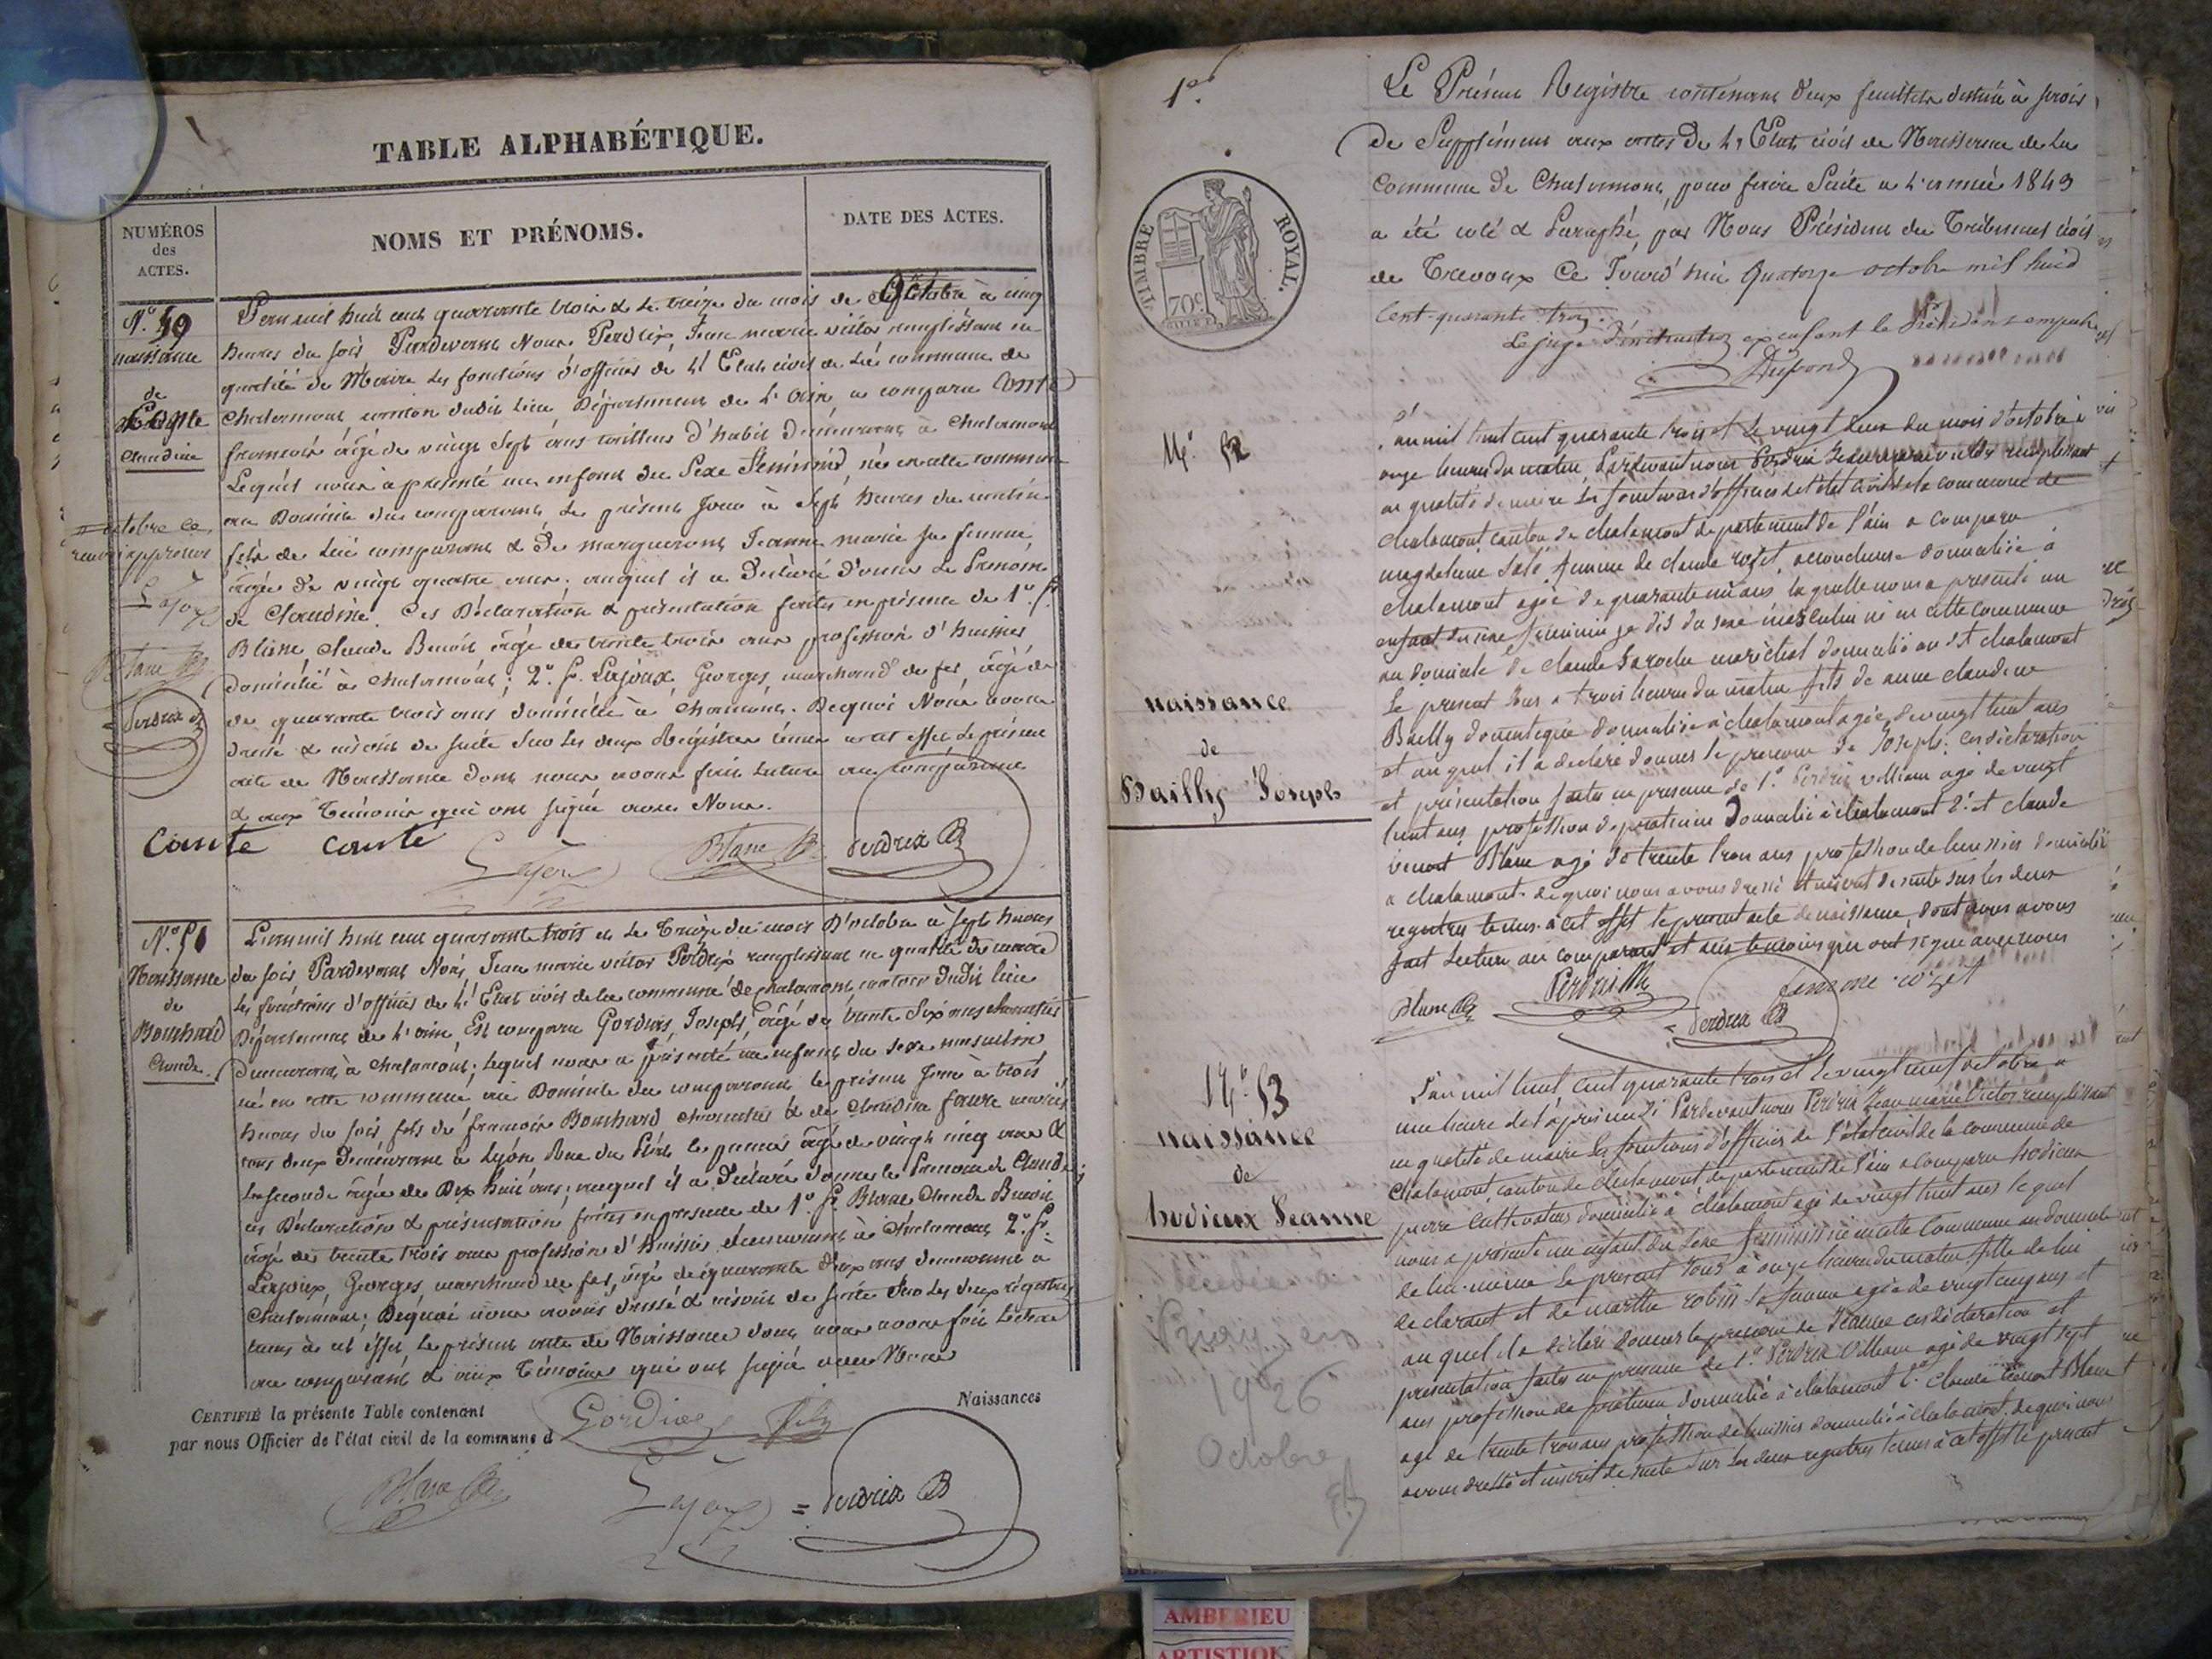 TABLE ALPHABÉTIQUE.
NUMÉROS
des
ACTES.
NOMS ET PRÉNOMS.
DATE DES ACTES.
naissance
de
Claudine
L'an mil huit cent quarante trois & le treize du mois de Octobre à cinq
heures du soir Pardevant Nous Perdrix, Jean marie victor remplissant en
qualité de Maire les fonctions d'officier de l'Etat civil de la commune de
Chalamont canton dudit lieu Département de l'Ain a comparu Conte
françois âgé de vingt sept ans tailleur d'habit demeurant à Chalamont
Lequel nous a présenté un enfant du Sexe féminin né en cette commune
au Domicile du comparant le présent jour à sept heures du matin
de lui comparant & de marguerone Jeanne marie sa femme
âgée de vingt quatre ans. auquel il a Déclaré donner le Prénom
de Claudine. Ces Déclaration & présentation faites en présence de 1° Sr
Blanc Claude Benoit âgé de trente trois ans profession d'huissier
domicilié à Chalamont; 2° Sr. Lajoux, Georges, marchand de fer, âgé de
de quarante trois ans domicilié à Chalamont. Dequoi Nous avons
dressé & inscrit de suite sur les deux Régistres tenus à cet effet le présent
acte de Naissance dont nous avons fait lecture au comparant
& aux Témoins qui ont signé avec Nous.
Conte conte
Blanc
Perdrix
N° 51
Naissance
de
Bouchard
Claude.
L'an mil huit cent quarante trois et le Treize du mois d'octobre à sept heures
du soir, Pardevant Nous, Jean marie victor Perdrix remplissant en qualité de maire
les fonctions d'officier de l'Etat civil de la commune de chalamont canton dudit lieu
Département de l'ain, Est comparu Gordias, Joseph, âgé de trente six ans
Demeurant à Chalamont; lequel nous a présenté un enfant du sexe masculin
né en cette commune au Domicile du comparant le présent jour à trois
heures du soir, fils de françois Bouchard & de Claudine
tous deux Demeurant à Lyon, Rue le premier âgé de vingt cinq ans &
la seconde âgée de Dix huit ans; auquel il a Déclaré donner le Prénom de Claude
ces Déclaration & présentation faites en présence de 1° Sr Blanc Claude Benoit
âgé de trente trois ans profession d'huissier, demeurant à Chalamont, 2° Sr.
Lajoux, Georges, marchand de fer, âgé de quarante deux ans demeurant à
Chalamont; Dequoi nous avons dressé & inscrit de suite sur les deux régistres
tenus à cet effet, le présent acte de Naissance dont nous avons fait lecture
au comparant & aux Témoins qui ont signé avec Nous
CERTIFIÉ la présente Table contenant
Naissances
par nous Officier de l'état civil de la commune d
Perdrix
1°.
TIMBRE ROYAL.
70c
Le Présent Régistre contenant deux feuillets destiné à servir
de Supplément aux actes de l'Etat civil de Naissance de la
commune de Chalamont, pour faire Suite à l'année 1843
a été coté & Paraphé, par Nous Président du Tribunal civil
de Trevoux Ce Jourd'hui Quatorze octobre mil huit
Cent-quarante trois.
Le juge d'instruction
N° 52
naissance
de
Bailly Joseph
L'an mil huit cent quarante trois et le vingt deux du mois d'octobre à
onze heures du matin Pardevant nous Perdrix Jean marie victor remplissant
en qualité de maire les fonctions d'officier de l'état civil de la commune de
chalamont canton de chalamont departement de l'ain a comparu
magdeleine femme de claude rozet, accoucheuse domiciliée à
chalamont agée de quarante ans laquelle nous a présenté un
enfant du sexe féminin je dis du sexe masculin né en cette commune
au domicile de claude Laroche maréchal domicilié au dit chalamont
le present jour à trois heures du matin fils de anne claudine
Bailly domestique domiciliée à chalamont agée de vingt huit ans
et au quel il a declaré donner le prenom de Joseph. ces déclaration
et présentation faites en presence de 1° Perdrix William agé de vingt
huit ans profession de praticien Domicilié à chalamont 2° et claude
benoit Blanc agé de trente trois ans profession de huissier domicilié
à chalamont. de quoi nous avons dressé et inscrit de suite sur les deux
registres tenus à cet effet le présent acte de naissance, dont nous avons
fait lecture au comparant et aux temoins qui ont signé avec nous
Perdrix
N° 53
naissance
de
hodieux Jeanne
1926
Octobre
L'an mil huit cent quarante trois et le vingt huit octobre à
une heure de l'après midi Pardevant nous Perdrix Jean marie Victor remplissant
en qualité de maire les fonctions d'officier de l'état civil de la commune de
Chalamont, canton de Chalamont departement de l'ain a comparu hodieux
pierre cultivateur domicilié à chalamont agé de vingt huit ans lequel
nous a présenté un enfant du sexe feminin né en cette commune au domicile
de lui-même le present jour à onze heures du matin fille de lui
declarant et de marthe robin sa femme agée de vingt cinq ans et
au quel il a déclaré donner le prenom de Jeanne ces déclaration et
presentation faites en presence de 1° Perdrix William agé de vingt sept
ans profession de praticien domicilié à chalamont 2° claude benoit Blanc
agé de trente trois ans profession de huissier domicilié à chalamont. de quoi nous
avons dressé et inscrit de suite sur les deux registres tenus à cet effet le present
AMBERIEU
ARTISTIQ